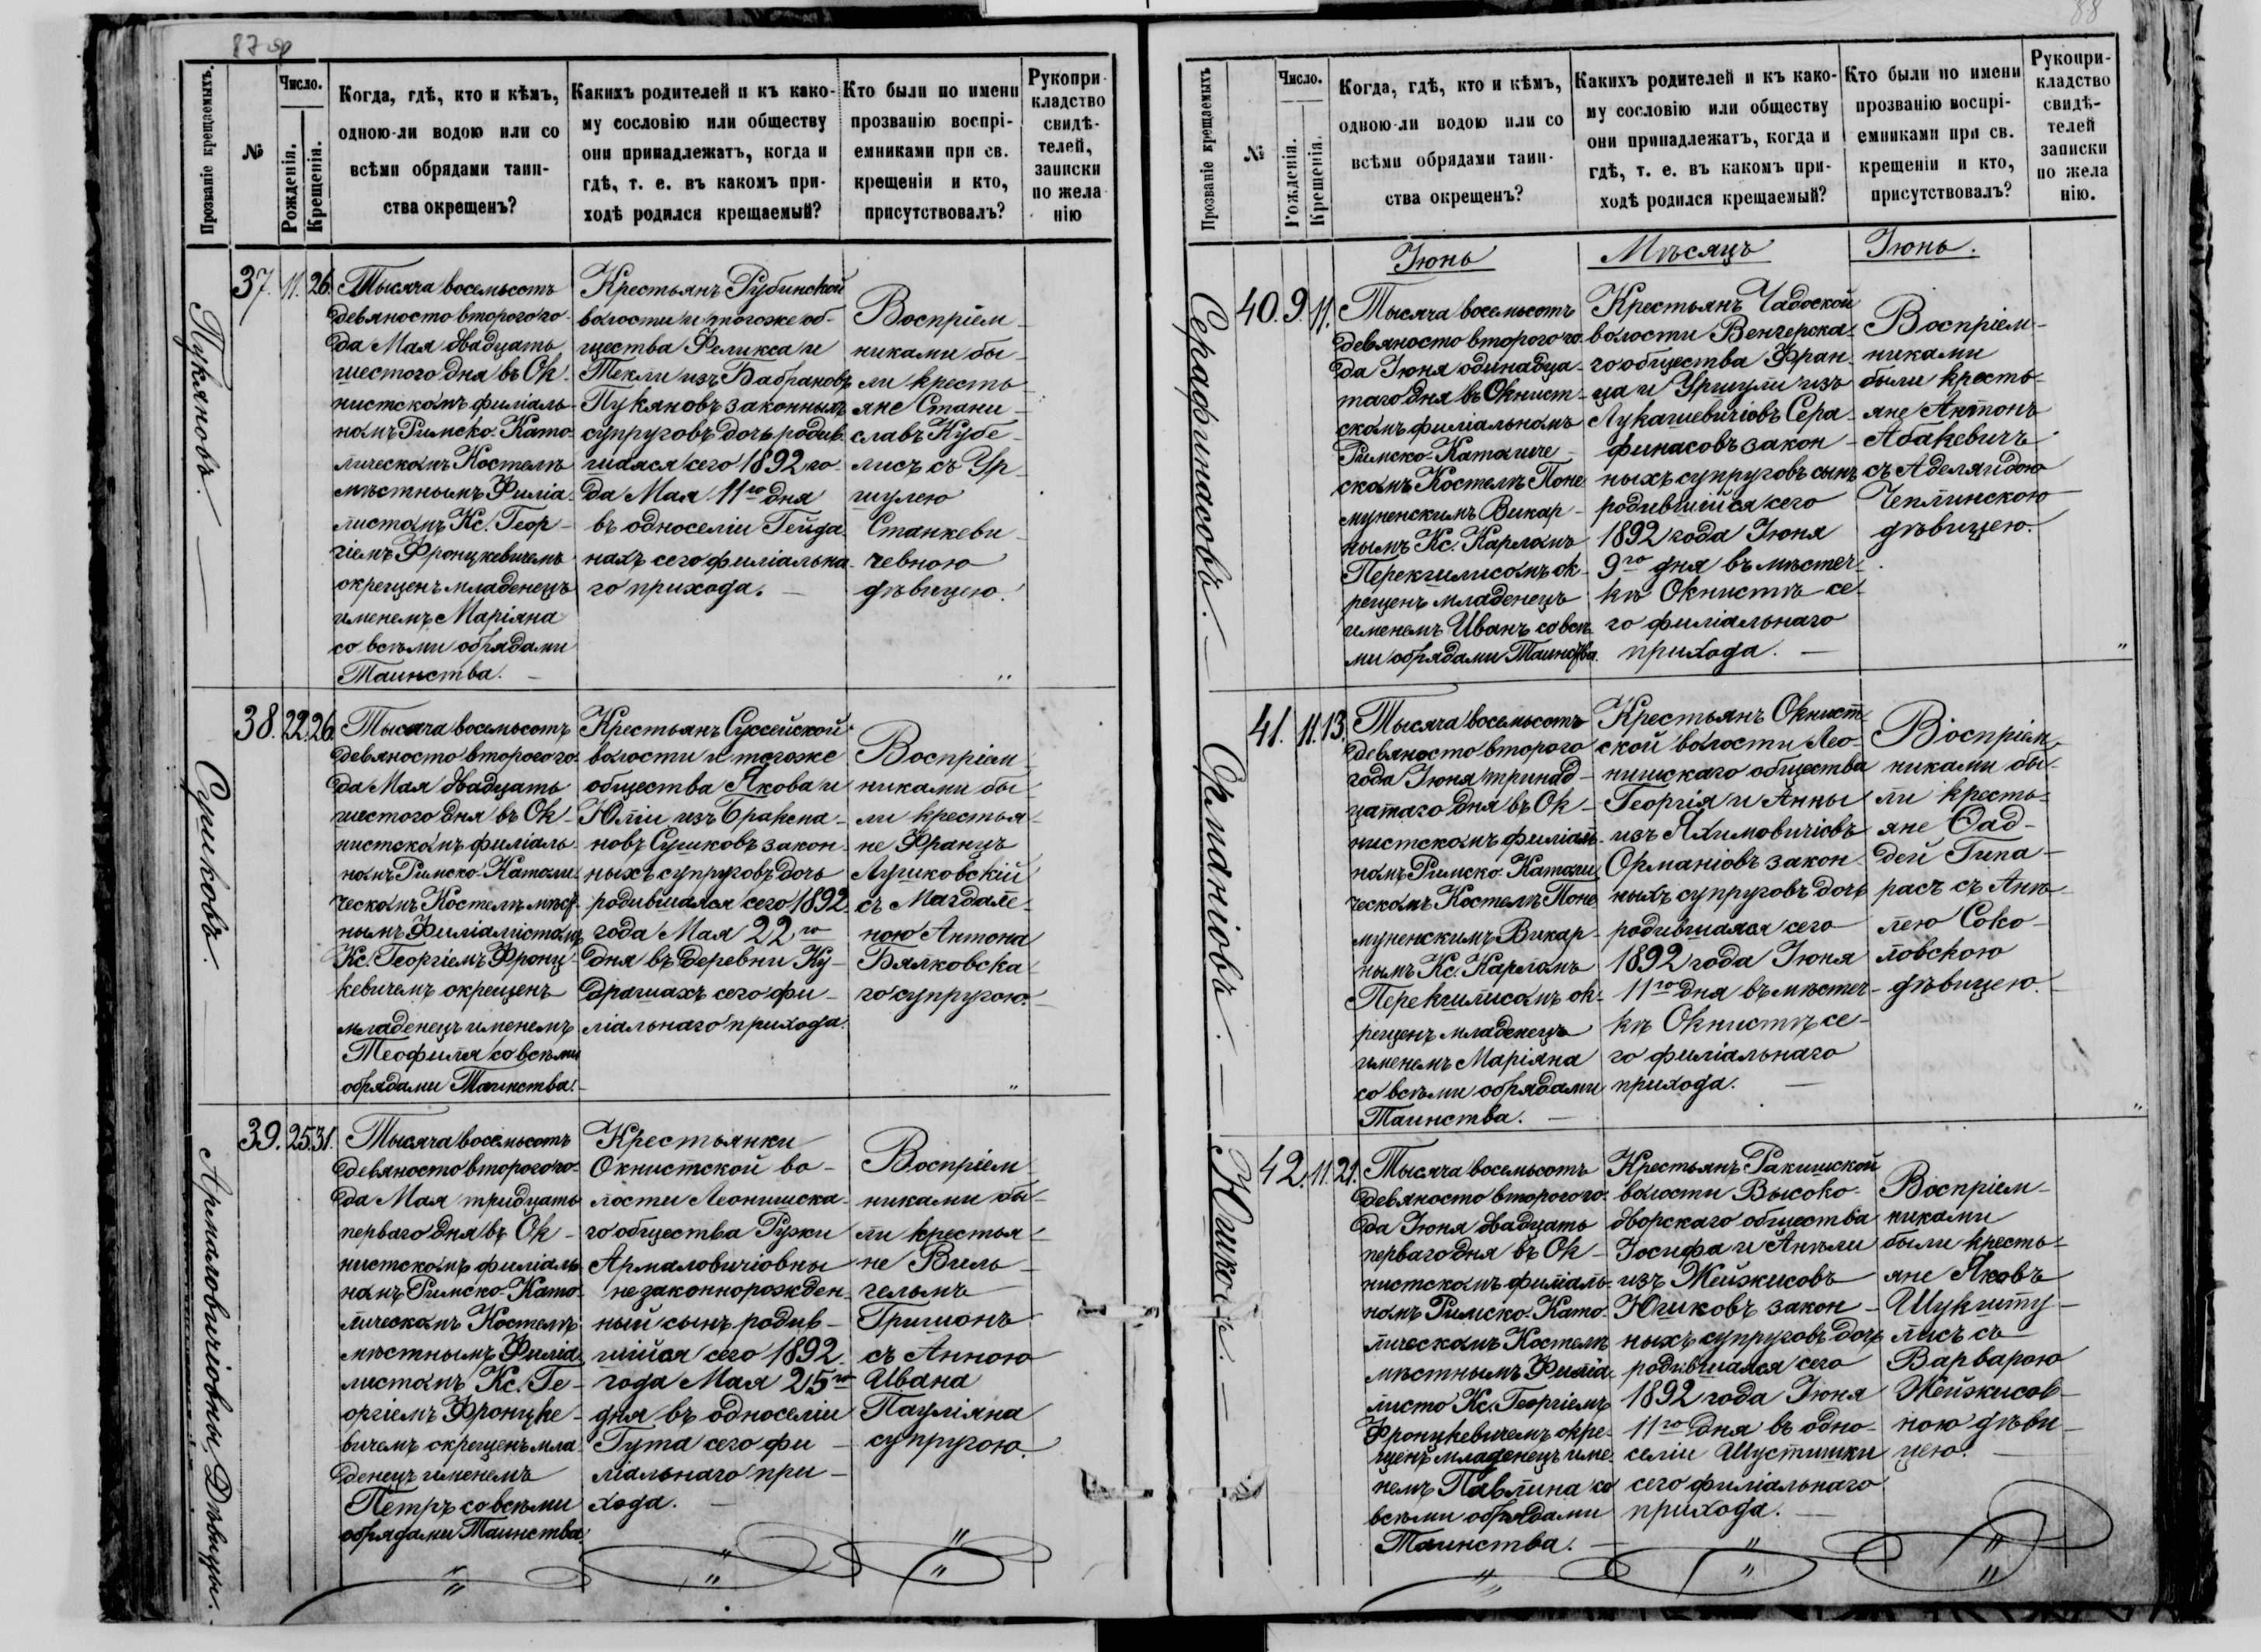 87 об
Прозваніе крещаемыхъ.
№
Число.
Рожденія.
Крещенія.
Когда, гдѣ, кто и кѣмъ,
одною-ли водою или со
всѣми обрядами таин-
ства окрещенъ?
Какихъ родителей и къ како-
му сословію или обществу
они принадлежатъ, когда и
гдѣ, т. е. въ какомъ при-
ходѣ родился крещаемый?
Кто были по имени
прозванію воспрі-
емниками при св.
крещеніи и кто,
присутствовалъ?
Рукопри-
кладство
свидѣ-
телей,
записки
по жела
нію
Пукяновъ.
37. 11. 26.
Тысяча восемьсотъ
девяносто второго го-
да Мая двадцать
шестого дня въ Ок-
нистскомъ филіаль-
номъ Римско-Като-
лическомъ Костелѣ
мѣстнымъ Филіа-
листомъ Кс. Геор-
гіемъ Фронцкевичемъ
окрещенъ младенецъ
именемъ Маріяна
со всѣми обрядами
Таинства.
Крестьянъ Рубинской
волости и тогоже об-
щества Феликса и
Текли изъ Бабрановъ
Пукяновъ законныхъ
супруговъ дочь родив-
шаяся сего 1892 го-
да Мая 11го дня
въ односеліи Гейда-
нахъ сего филіально-
го прихода.
Воспріем-
никами бы-
ли кресть-
яне Стани-
славъ Кубе-
лисъ съ Ур-
шулею
Станкеви-
чевною
дѣвицею.
Сушковъ.
38. 22. 26.
Тысяча восемьсотъ
девяносто второго го-
да Мая двадцать
шестого дня въ Ок-
нистскомъ филіаль-
номъ Римско-Католи-
ческомъ Костелѣ мѣст-
нымъ Филіалистомъ
Кс. Георгіемъ Фронц-
кевичемъ окрещенъ
младенецъ именемъ
Теофиля со всѣми
обрядами Таинства.
Крестьянъ Суссейской
волости и тогоже
общества Якова и
Юліи изъ Бракена-
новъ Сушковъ закон-
ныхъ супруговъ дочь
родившаяся сего 1892
года Мая 22го
дня въ деревни Ку-
драшахъ сего фи-
ліальнаго прихода.
Воспріем-
никами бы-
ли крестья-
не Францъ
Лушковскій
съ Магдале-
ною Антона
Бялковска-
го супругою.
Армаловичіовны, Дѣвицы.
39. 25. 31.
Тысяча восемьсотъ
девяносто второго го-
да Мая тридцать
перваго дня въ Ок-
нистскомъ филіаль-
номъ Римско-Като-
лическомъ Костелѣ
мѣстнымъ Филіа-
листомъ Кс. Ге-
оргіемъ Фронцке-
вичемъ окрещенъ мла-
денецъ именемъ
Петръ со всѣми
обрядами Таинства.
Крестьянки
Окнистской во-
лости Леонишска-
го общества Рузки
Армаловичіовны
незаконнорожден-
ный сынъ родив-
шійся сего 1892
года Мая 25го
дня въ односеліи
Гута сего фи-
ліальнаго при-
хода.
Воспріем-
никами бы-
ли крестья-
не Виль-
гельмъ
Гришонъ
съ Анною
Ивана
Пауліяна
супругою.
88
Прозваніе крещаемыхъ
№
Число.
Рожденія.
Крещенія.
Когда, гдѣ, кто и кѣмъ,
одною-ли водою или со
всѣми обрядами таин-
ства окрещенъ?
Какихъ родителей и къ како-
му сословію или обществу
они принадлежатъ, когда и
гдѣ, т. е. въ какомъ при-
ходѣ родился крещаемый?
Кто были по имени
прозванію воспрі-
емниками при св.
крещеніи и кто,
присутствовалъ?
Рукопри-
кладство
свидѣ-
телей
записки
по жела
нію.
Іюнь Мѣсяцъ Іюнь.
Серафинасовъ.
40. 9. 11.
Тысяча восемьсотъ
девяносто второго го-
да Іюня одинадца-
таго дня въ Окнист-
скомъ филіальномъ
Римско-Католиче-
скомъ Костелѣ Поне-
муненскимъ Викар-
нымъ Кс. Карломъ
Перекшлисомъ ок-
рещенъ младенецъ
именемъ Иванъ со всѣ-
ми обрядами Таинства.
Крестьянъ Чадоской
волости Венгерска-
го общества Фран-
ца и Уршули изъ
Лукашевичіовъ Сера-
финасовъ закон-
ныхъ супруговъ сынъ
родившійся сего
1892 года Іюня
9го дня въ мѣстеч-
кѣ Окнистѣ се-
го филіальнаго
прихода.
Воспріем-
никами
были кресть-
яне Антонъ
Абакевичъ
съ Аделяидою
Чеплинскою
дѣвицею.
Орманіовъ.
41. 11. 13.
Тысяча восемьсотъ
девяносто второго
года Іюня тринад-
цатаго дня въ Ок-
нистскомъ филіаль-
номъ Римско-Католи-
ческомъ Костелѣ Поне-
муненскимъ Викар-
нымъ Кс. Карломъ
Перекшлисомъ ок-
рещенъ младенецъ
именемъ Маріяна
со всѣми обрядами
Таинства.
Крестьянъ Окнист-
ской волости Лео-
нишскаго общества
Георгія и Анны
изъ Яхимовичіовъ
Орманіовъ закон-
ныхъ супруговъ дочь
родившаяся сего
1892 года Іюня
11го дня въ мѣстеч-
кѣ Окнистѣ се-
го филіальнаго
прихода.
Воспріем-
никами бы-
ли кресть-
яне Фад-
дей Гипа-
расъ съ Анѣ-
лею Соко-
ловскою
дѣвицею.
Югиковъ.
42. 11. 21.
Тысяча восемьсотъ
девяносто второго го-
да Іюня двадцать
перваго дня въ Ок-
нистскомъ филіаль-
номъ Римско-Като-
лическомъ Костелѣ
мѣстнымъ Филіа-
листо Кс. Георгіемъ
Фронцкевичемъ окре-
щенъ младенецъ име-
немъ Павлина со
всѣми обрядами
Таинства.
Крестьянъ Ракишской
волости Высоко-
дворскаго общества
Іосифа и Анѣли
изъ Жейжисовъ
Югиковъ закон-
ныхъ супруговъ дочь
родившаяся сего
1892 года Іюня
11го дня въ одно-
селіи Шустишки
сего филіальнаго
прихода.
Воспріем-
никами
были кресть-
яне Яковъ
Шукшту-
лисъ съ
Варварою
Жейжисов-
ною дѣви-
цею.